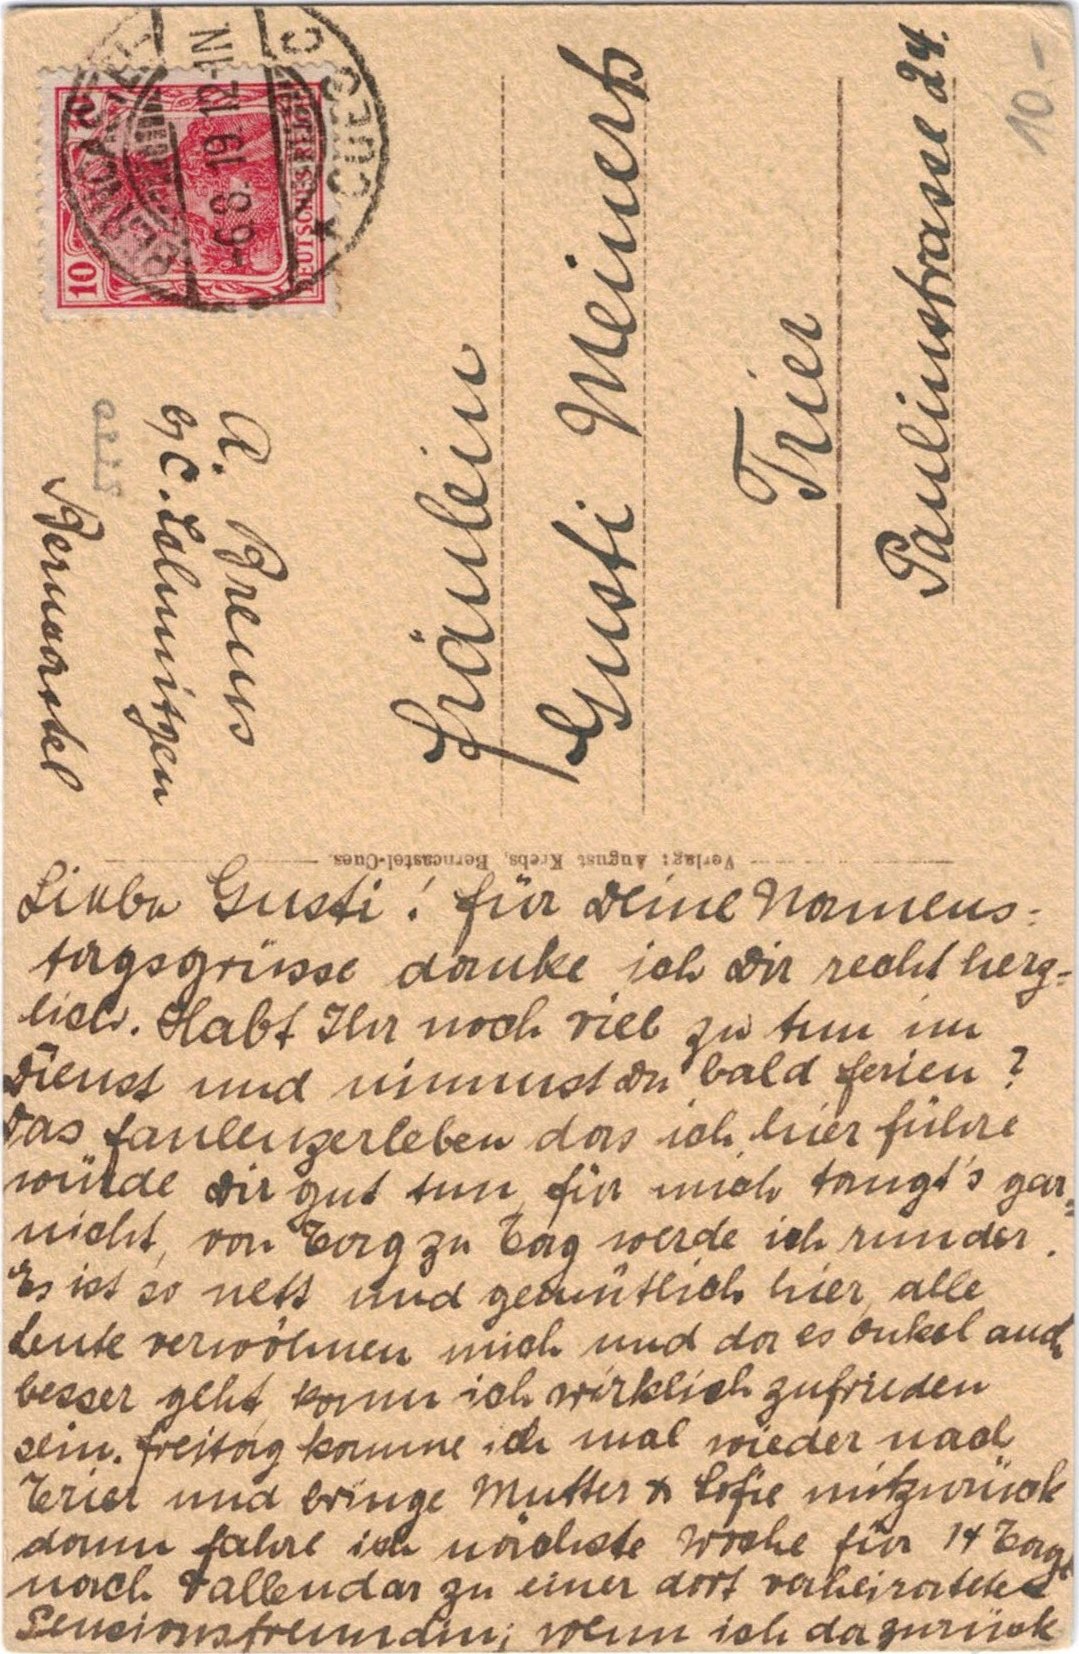 10
DEUTSCHES REICH
BERNCASTEL
-6.8.19.12-1N.
* CUES C
10.-
A. Preus
b/ C.
Berncastel
Fräulein
Gusti Meinertz
Trier
Paulinstrasse 24.
Verlag: August Krebs, Berncastel-Cues.
Liebe Gusti! für Deine Namens-
tagsgrüsse danke ich Dir recht herz-
lich. Habt Ihr noch viel zu tun im
Dienst und nimmst Du bald ferien?
Das faulenzerleben das ich hier führe
würde Dir gut tun, für mich taugt's gar-
nicht, von Tag zu Tag werde ich runder.
Es ist so nett und gemütlich hier, alle
Leute verwöhnen mich und da es Onkel auch
besser geht, kann ich wirklich zufrieden
sein. freitag komme ich mal wieder nach
Trier und bringe Mutter & Sofie mitzurück
dann fahre ich nächste Woche für 14 Tage
nach Vallendar zu einer dort verheirateten
Pensionsfreundin; wenn ich da zurück